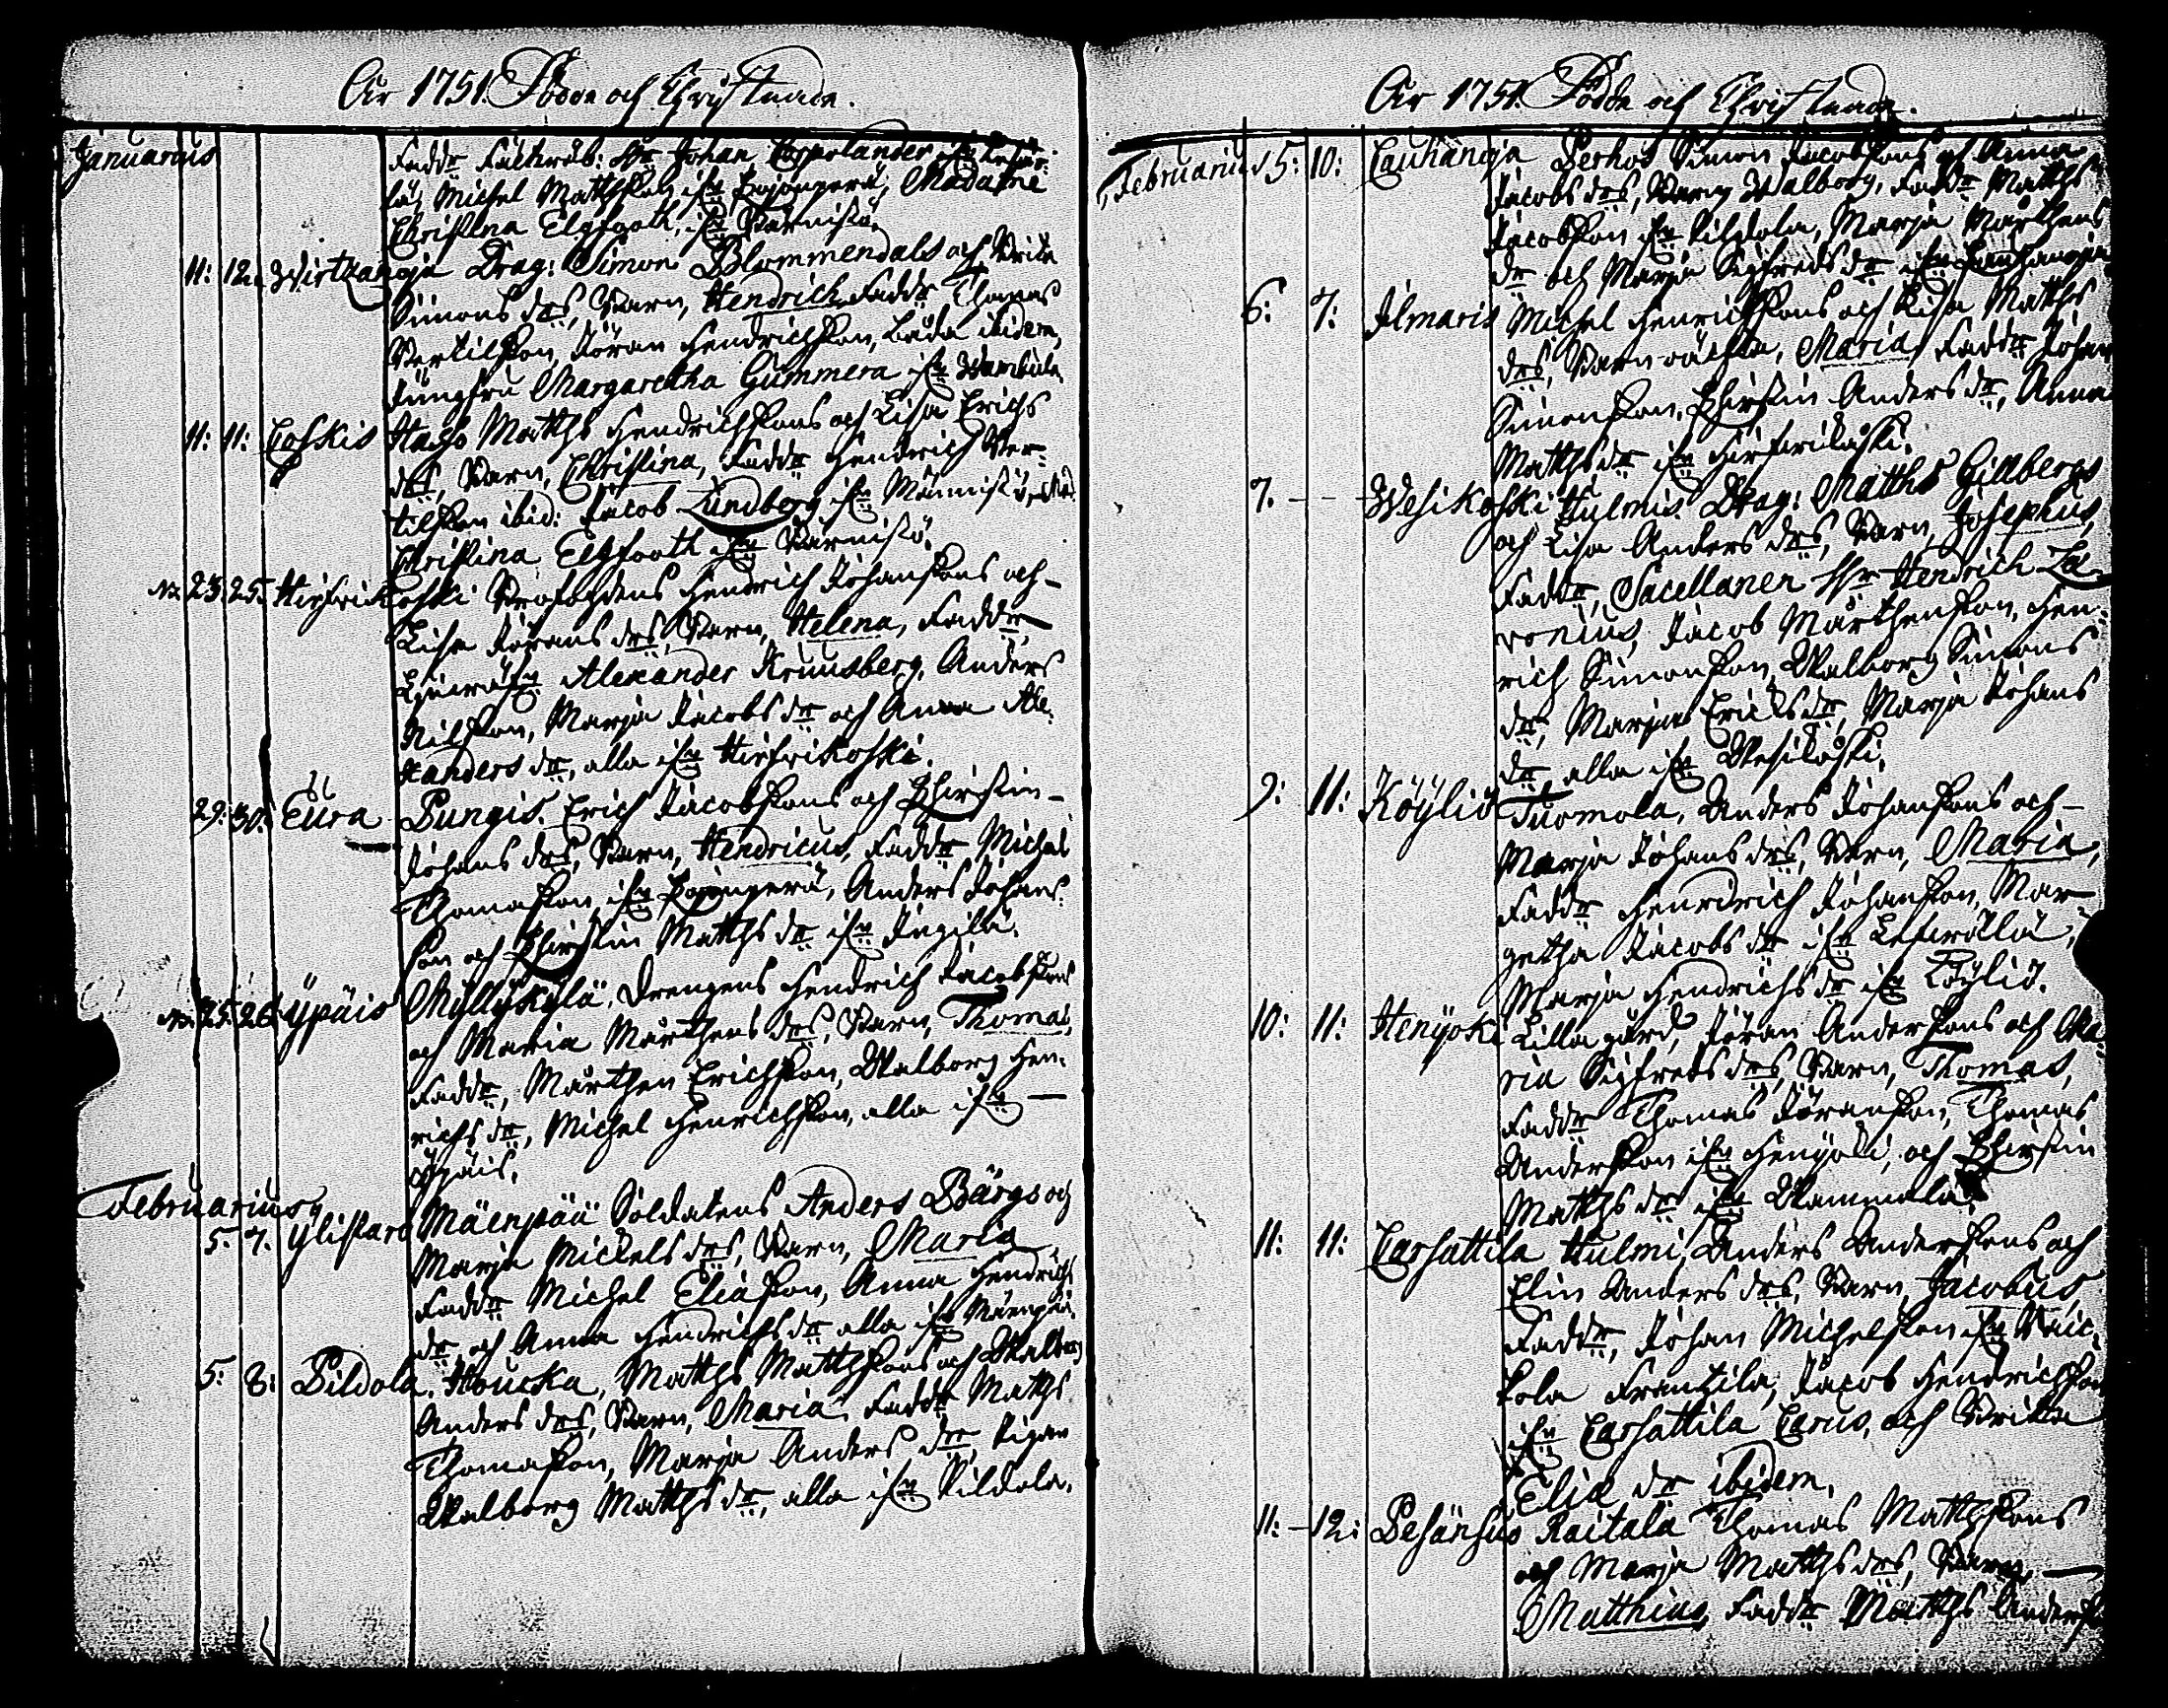 År 1751. Födde och Christnade.
Januarius
Fadd:r Fältwäb: H:r Johan Copperlander
Michel Matthsson ifr: Madame
Christina Elgfooth, ifr:
11: 12. Wirtzanoja Drag: Simon Blommendals och Brita
Simons d:rs, Barn, Hendrich Fadd:r Thomas
Bertilsson, Jöran Hendrichsson, båda ibidem,
Jungfru Margaretha Gummera ifr: Wambula.
11: 11: Coskis Hago Matths Hendrichssons och Lisa Erichs
d:rs, Barn, Christina, Fadd:r Hendrich Ber-
tilsson ibid: Jacob Lundberg ifr:
Christina Elgfooth ifr:
Nz 23. 25. Hirfwikoski Profossens Hendrich Johanssons och
Lisa Jörans d:rs, Barn, Helena, Fadd:r
Alexander Krumsberg, Anders
Nilsson, Marja Jacobs d:r och Anna Ale-
xanders d:r, alla ifr: Hirfwikoski.
29: 30: Eura Pungis. Erich Jacobssons och Christin
Johans d:rs, Barn, Hendricus, Fadd:r Michel
Thomasson ifr: Anders Johans-
son och Christin Matths d:r ifr:
Nz. 25. 26. Ypäis Myllykylä, Drengens Hendrich Jacobssons
och Maria Mårthens d:rs, Barn, Thomas,
Fadd:r, Mårthen Erichsson, Walborg Hen-
richs d:r, Michel Henrichsson, alla ifr:
Ypäis.
Februarius
5. 7. Ylistaro Mäenpää Soldatens Anders Bärgs och
Marja Mickels d:rs, Barn, Maria
Fadd:r Michel Eliasson, Anna Hendrichs
d:r och Anna Hendrichs d:r alla ifr: Mäenpää.
5: 8: Pildola. Houcka, Matths Matthssons och Walborg
Anders d:rs, Barn, Maria. Fadd:r Matths
Thomasson, Marja Anders d:r, Pigan
Walborg Matths d:r, alla ifr: Pildola.
År 1751. Födde och Christnade.
Februarius 5: 10: Cauhanoja Perhos Simon Jacobssons och Anna
Jacobs d:rs, Barn Walborg, Fadd:r Matths
Jacobsson ifr: Pildola, Marja Mårthens
d:r och Marja Sigfreds d:r ifr: Cauhanoja
6: 7: Ilmaris Michel Henrichssons och Lisa Matths
d:rs, Barn Maria, Fadd:r Johan
Simonsson, Christin Anders d:r, Anna
Matths d:r ifr: Hirfwikoski.
7. - - Wesikoski Hulmis. Drag: Matths Gillbergs
och Lisa Anders d:rs, Barn, Josephus,
Fadd:r, Sacellanen H:r Hendrich La-
vonius, Jacob Mårthensson, Hen-
rich Simonsson, Walborg Simons
d:r, Marja Erics d:r, Marja Johans
d:r alla ifr: Wesikoski.
9: 11: Köyliö Tuomola, Anders Johanssons och
Marja Johans d:rs, Barn, Maria,
Fadd:r Hendrich Johansson, Mar-
getha Jacobs d:r ifr:
Marja Hendrichs d:r ifr: Cöyliö.
10: 11: Henyoki Lillagård, Jöran Anderssons och Ma-
ria Sigfreds d:rs, Barn, Thomas,
Fadd:r Thomas Jöransson, Thomas
Andersson ifr: Henyoki, och Christin
Matths d:r ifr: Wammala.
11: 11: Carhattila Hulmi, Anders Anderssons och
Elin Anders d:rs, Barn, Jacobus,
Fadd:r, Johan Michelsson ifr:
Frantzila, Jacob Hendrichsson
ifr: Carhattila Carus, och Brita
Elia d:r ibidem.
11: - 12: Pesänsuo Raitala Thomas Matthssons
och Marja Matths d:rs, Barn,
Matthias, Fadd:r Matths Anderss